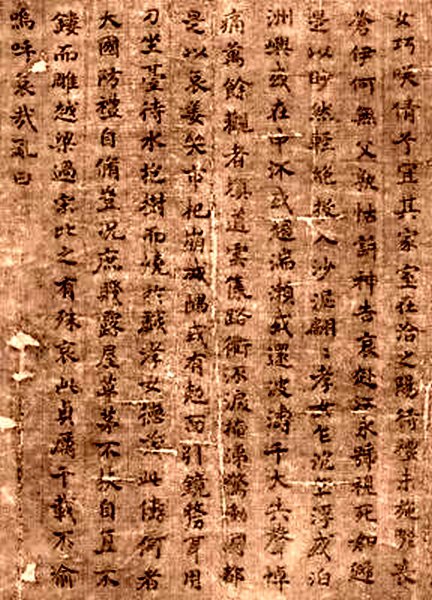 女巧咲倩兮宜其家室在洽之陽待禮未施嗟喪
蒼伊何無父孰怙訴神告哀赴江永號視死如歸
是以眇然輕絕投入沙泥翩〻孝女乍沉乍浮或泊
洲嶼或在中流或趍湍瀨或還波濤千夫失聲悼
痛萬餘觀者填道雲集路衢流淚掩涕驚慟國都
是以哀姜哭市杞崩城隅或有尅面引鏡剺耳用
刀坐臺待水抱樹而燒於戲孝女德茂此儔何者
大國防禮自脩豈況庶賤露屋草茅不扶自直不
鏤而雕越梁過宋比之有殊哀此貞厲千載不渝
嗚呼哀哉亂曰